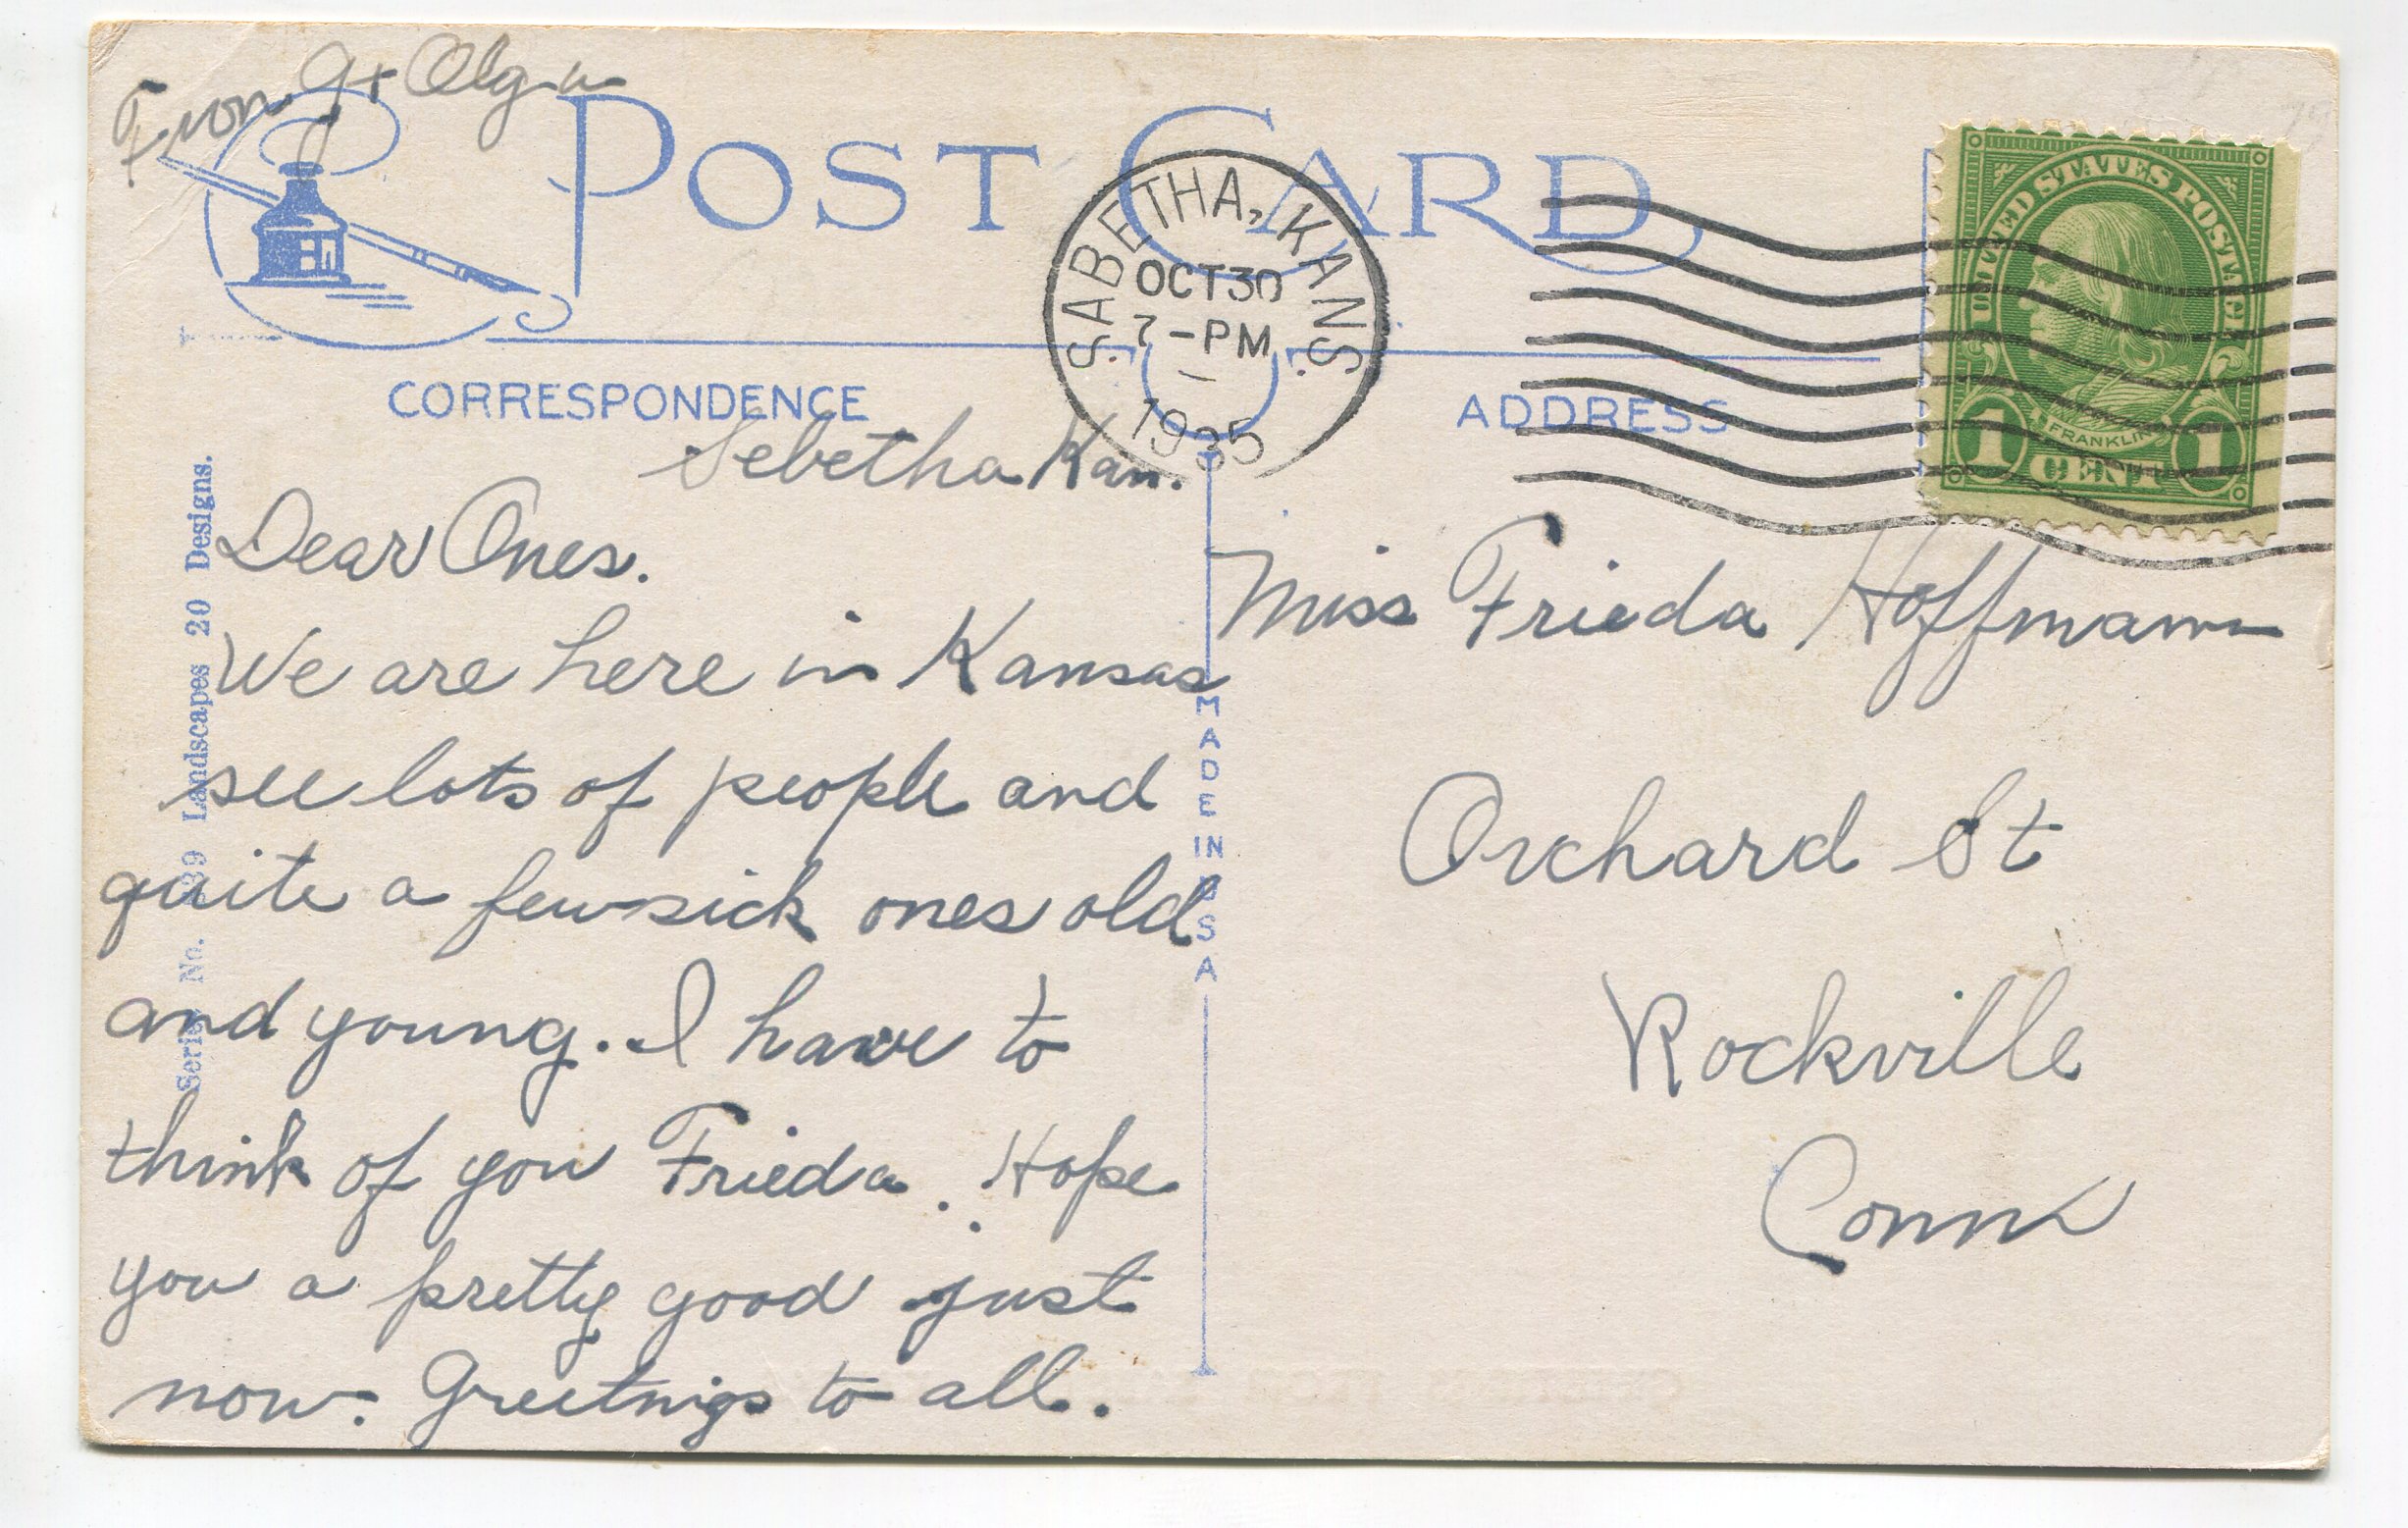 From G + Olga
POST CARD
SABETHA, KANS.
OCT 30
7-PM
1935
UNITED STATES POSTAGE
FRANKLIN
1 CENT 1
CORRESPONDENCE
ADDRESS
Sebetha Kan.
Dear Ones.
We are here in Kansas
see lots of people and
quite a few sick ones old
and young. I have to
think of you Frieda. Hope
you a pretty good just
now. Greetings to all.
Miss Frieda Hoffmann
Orchard St
Rockville
Conn
Series No. Landscapes 20 Designs.
MADE IN USA